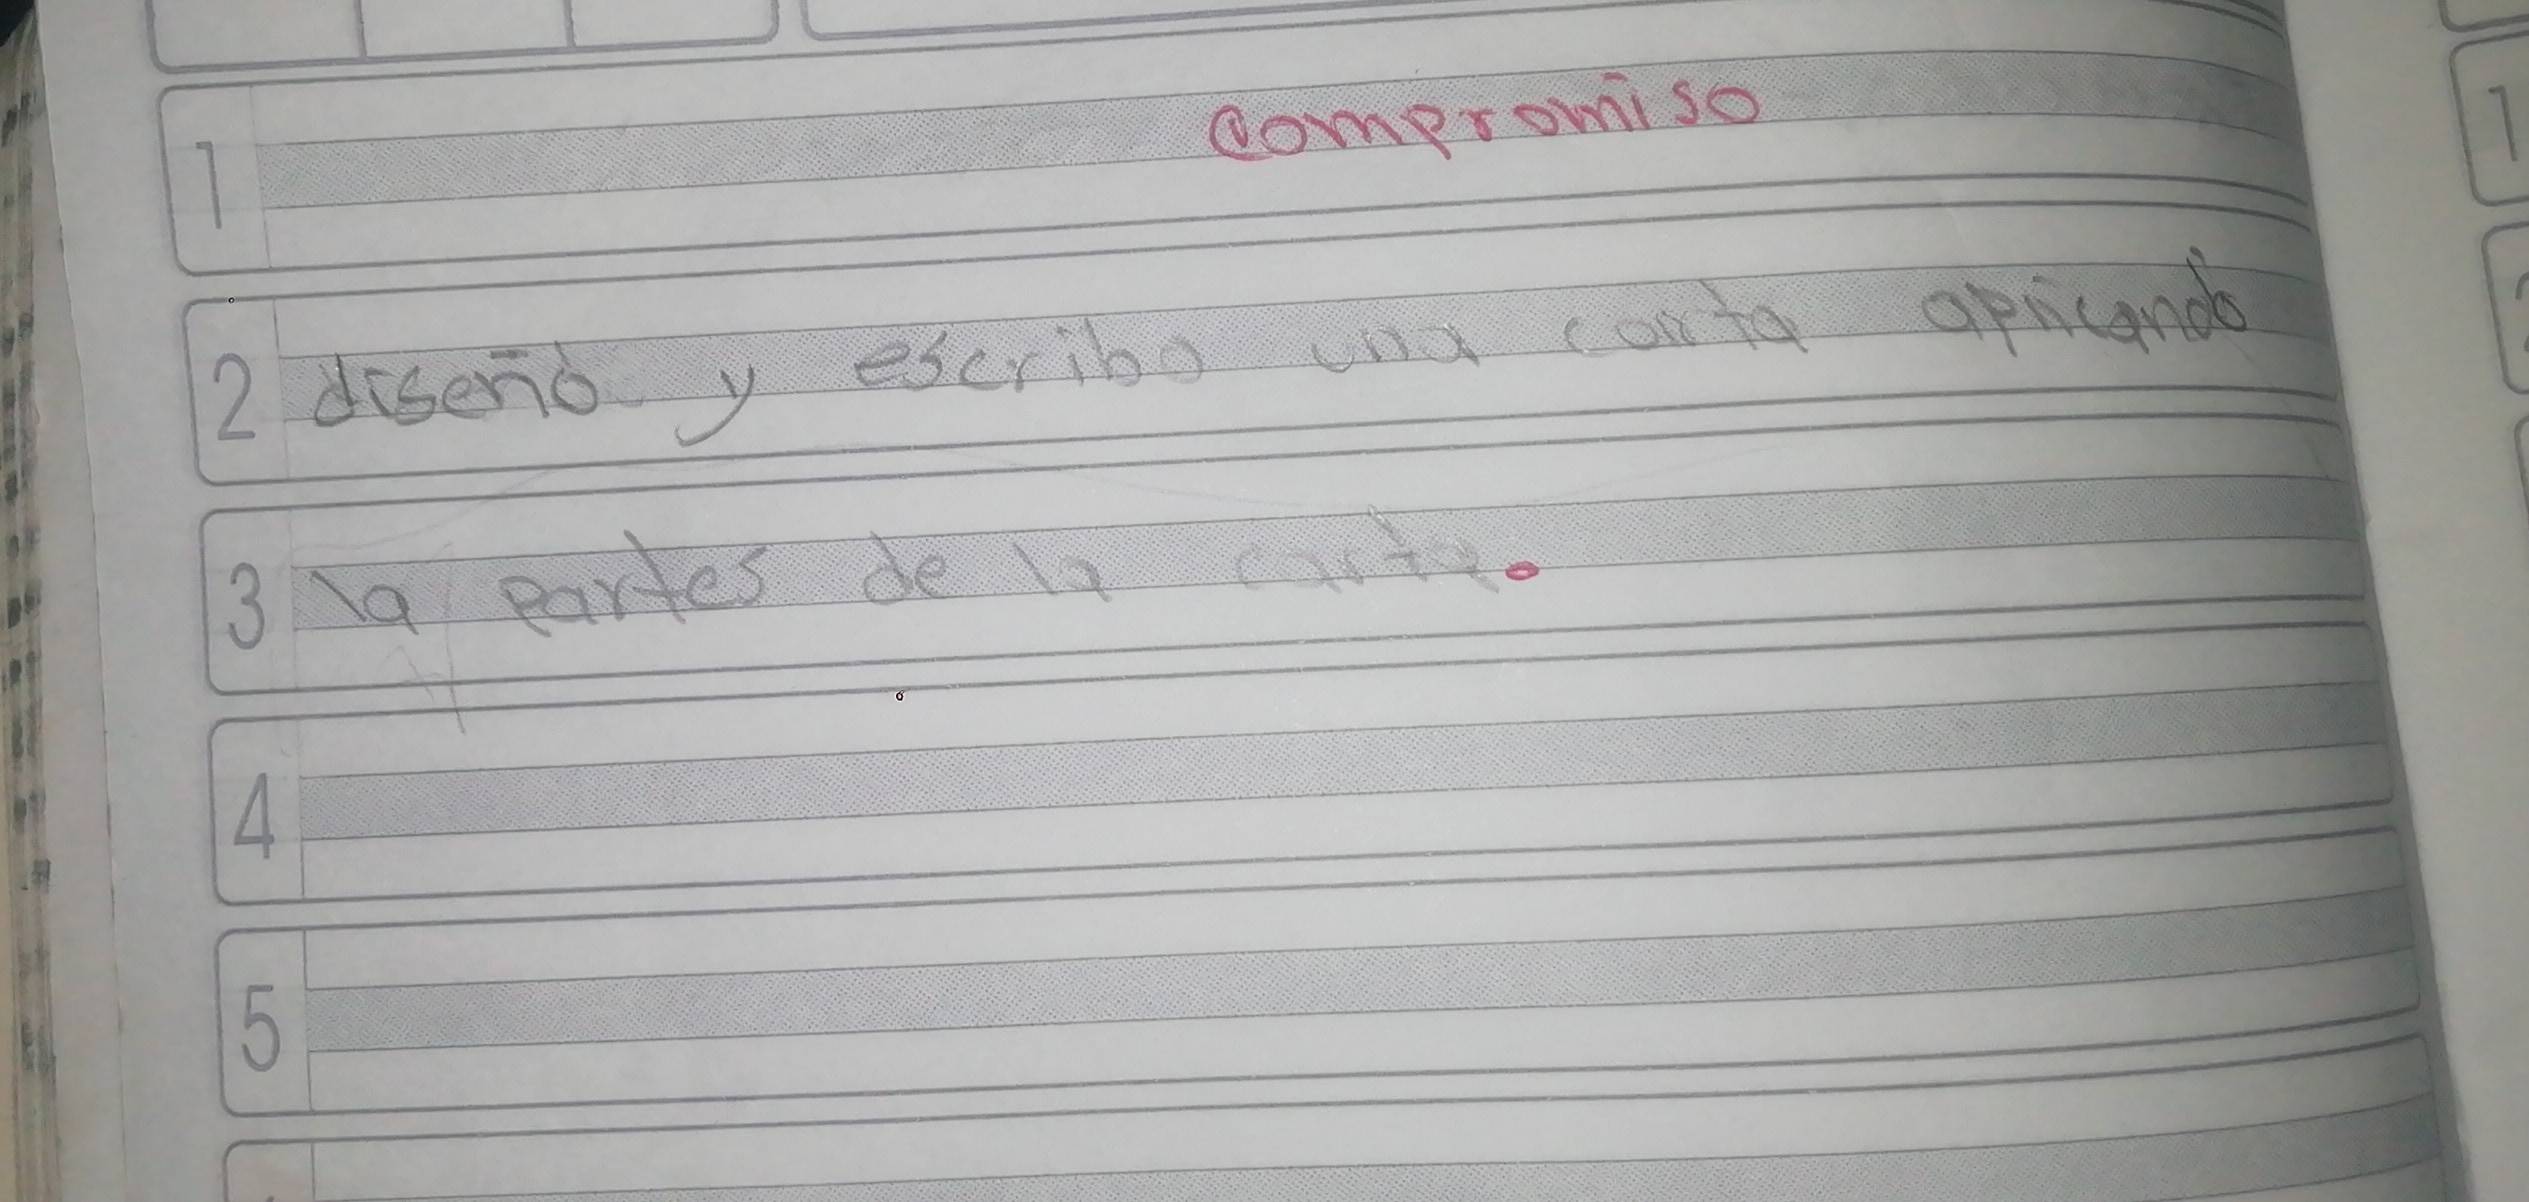 1 compromiso
2 diseño y escribo una carta aplicando
3 la partes de la carta.
4
5